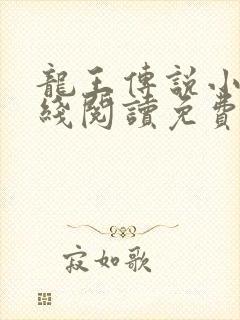 龍王傳説小
綫閱讀免費
寂如歌